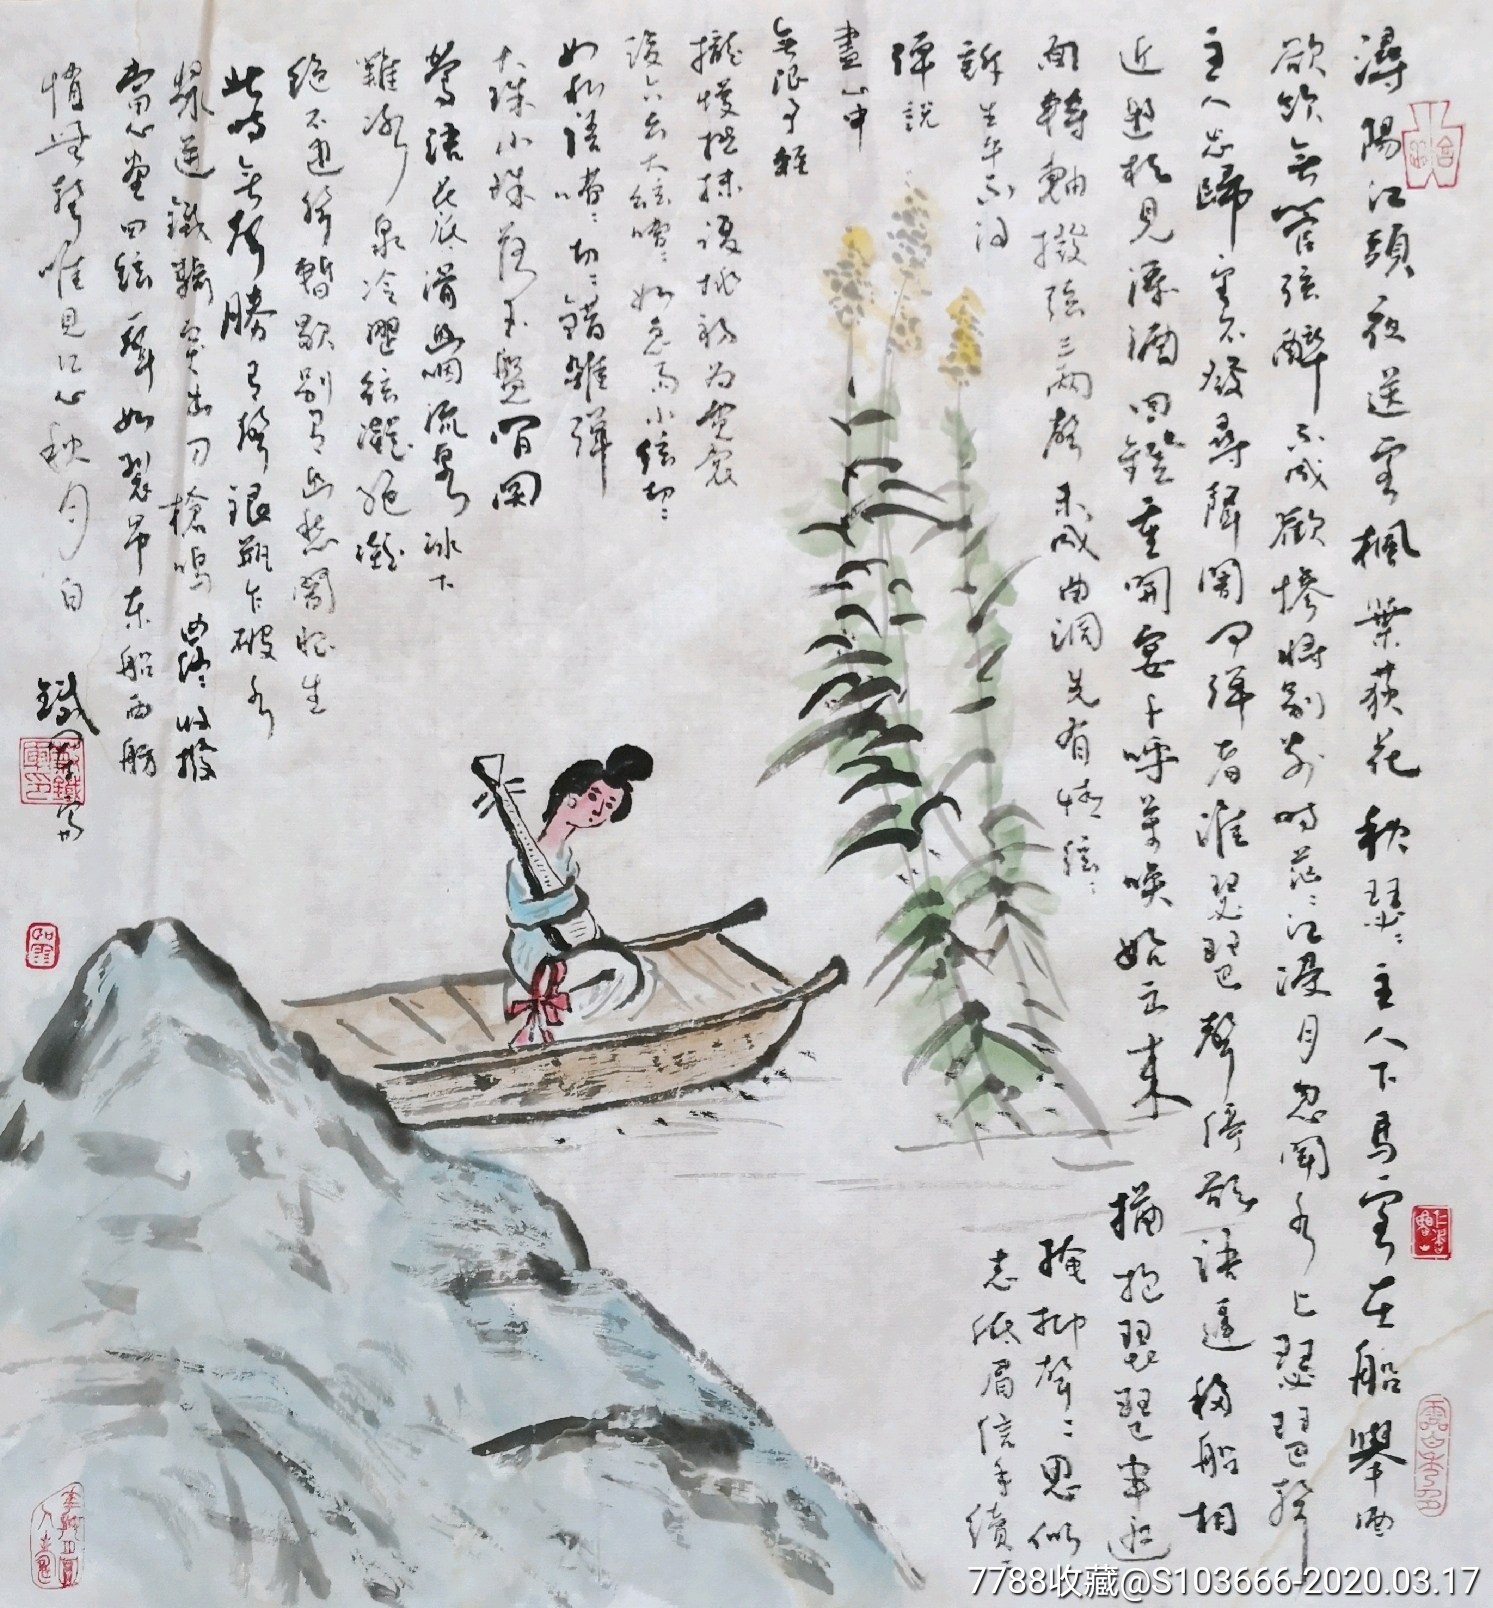 潯陽江頭夜送客楓葉荻花秋瑟〻主人下馬客在船舉酒
欲飲無管弦醉不成歡慘將別別時茫〻江浸月忽聞水上琵琶聲
主人忘歸客不發尋聲闇問彈者誰琵琶聲停欲語遲移船相
近邀相見添酒回鐙重開宴千呼萬喚始出來猶抱琵琶半遮
面轉軸撥弦三兩聲未成曲調先有情弦〻掩抑聲〻思似
訴生平不得志低眉信手續〻
彈說
盡心中
無限事輕
攏慢撚抹復挑初為霓裳
後六幺大弦嘈〻如急雨小弦切〻
如私語嘈〻切〻錯雜彈
大珠小珠落玉盤間關
鶯語花底滑幽咽流泉冰下
難冰泉冷澀弦凝絕凝
絕不通聲暫歇別有幽愁闇恨生
此時無聲勝有聲銀瓶乍破水
漿迸鐵騎突出刀槍鳴曲終收撥
當心畫四弦一聲如裂帛東船西舫
悄無聲唯見江心秋月白
鐵軍寫
7788收藏@S103666-2020.03.17